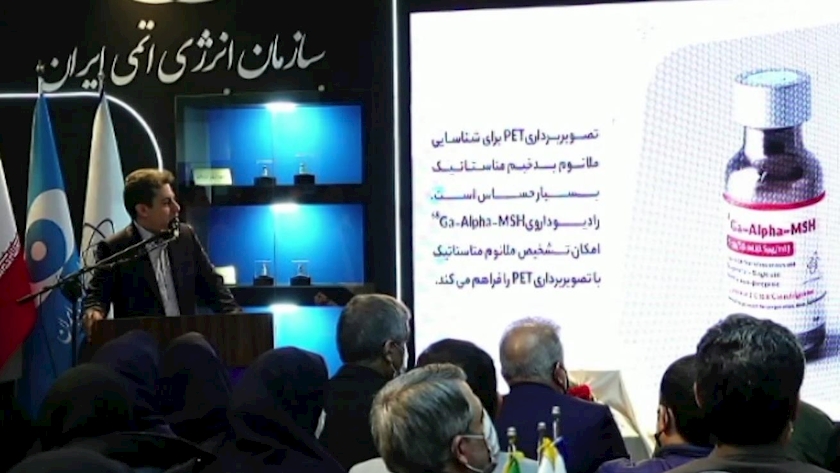 سازمان انرژی اتمی ایران
تصویربرداری PET برای شناسایی
ملانوم بدخیم متاستاتیک
بسیار حساس است.
رادیوداروی ⁶⁸Ga-Alpha-MSH
امکان تشخیص ملانوم متاستاتیک
با تصویربرداری PET را فراهم می کند.
Ga-Alpha-MSH